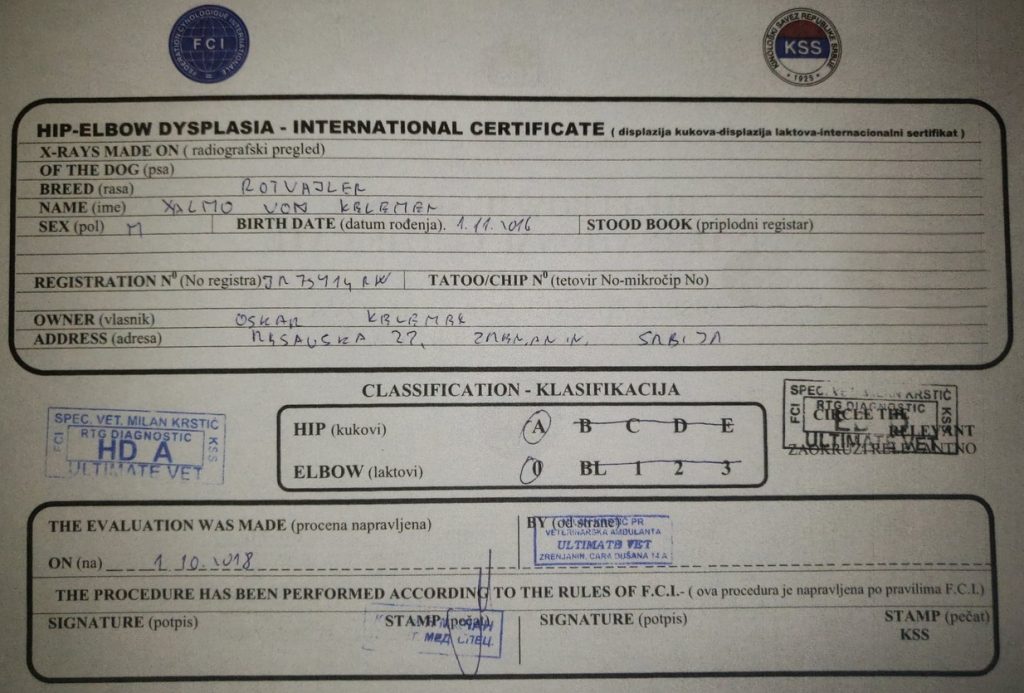 FEDERATION CYNOLOGIQUE INTERNATIONALE
FCI
KINOLOŠKI SAVEZ REPUBLIKE SRBIJE
KSS
1925
HIP-ELBOW DYSPLASIA - INTERNATIONAL CERTIFICATE ( displazija kukova-displazija laktova-internacionalni sertifikat )
X-RAYS MADE ON ( radiografski pregled)
OF THE DOG (psa)
BREED (rasa) ROTVAJLER
NAME (ime) XALMO VON KELEMEN
SEX (pol) M BIRTH DATE (datum rođenja). 1.11.2016 STOOD BOOK (priplodni registar)
REGISTRATION N0 (No registra) JR 73414 RW TATOO/CHIP N0 (tetovir No-mikročip No)
OWNER (vlasnik) OSKAR
ADDRESS (adresa) RESAVSKA 27, SRBIJA
CLASSIFICATION - KLASIFIKACIJA
SPEC. VET. MILAN KRSTIĆ
FCI RTG DIAGNOSTIC KSS
HD A
ULTIMATE VET
HIP (kukovi) A B C D E
ELBOW (laktovi) 0 BL 1 2 3
SPEC. VET. MILAN KRSTIĆ
FCI RTG DIAGNOSTIC KSS
ULTIMATE VET
CIRCLE THE
RELEVANT
ZAOKRUŽI RELEVANTNO
THE EVALUATION WAS MADE (procena napravljena) BY (od strane)
VETERINARSKA AMBULANTA
ULTIMATE VET
ZRENJANIN, CARA DUŠANA 14 A
ON (na) 1.10.2018
THE PROCEDURE HAS BEEN PERFORMED ACCORDING TO THE RULES OF F.C.I.- ( ova procedura je napravljena po pravilima F.C.I.)
SIGNATURE (potpis) STAMP (pečat) SIGNATURE (potpis) STAMP (pečat)
KSS